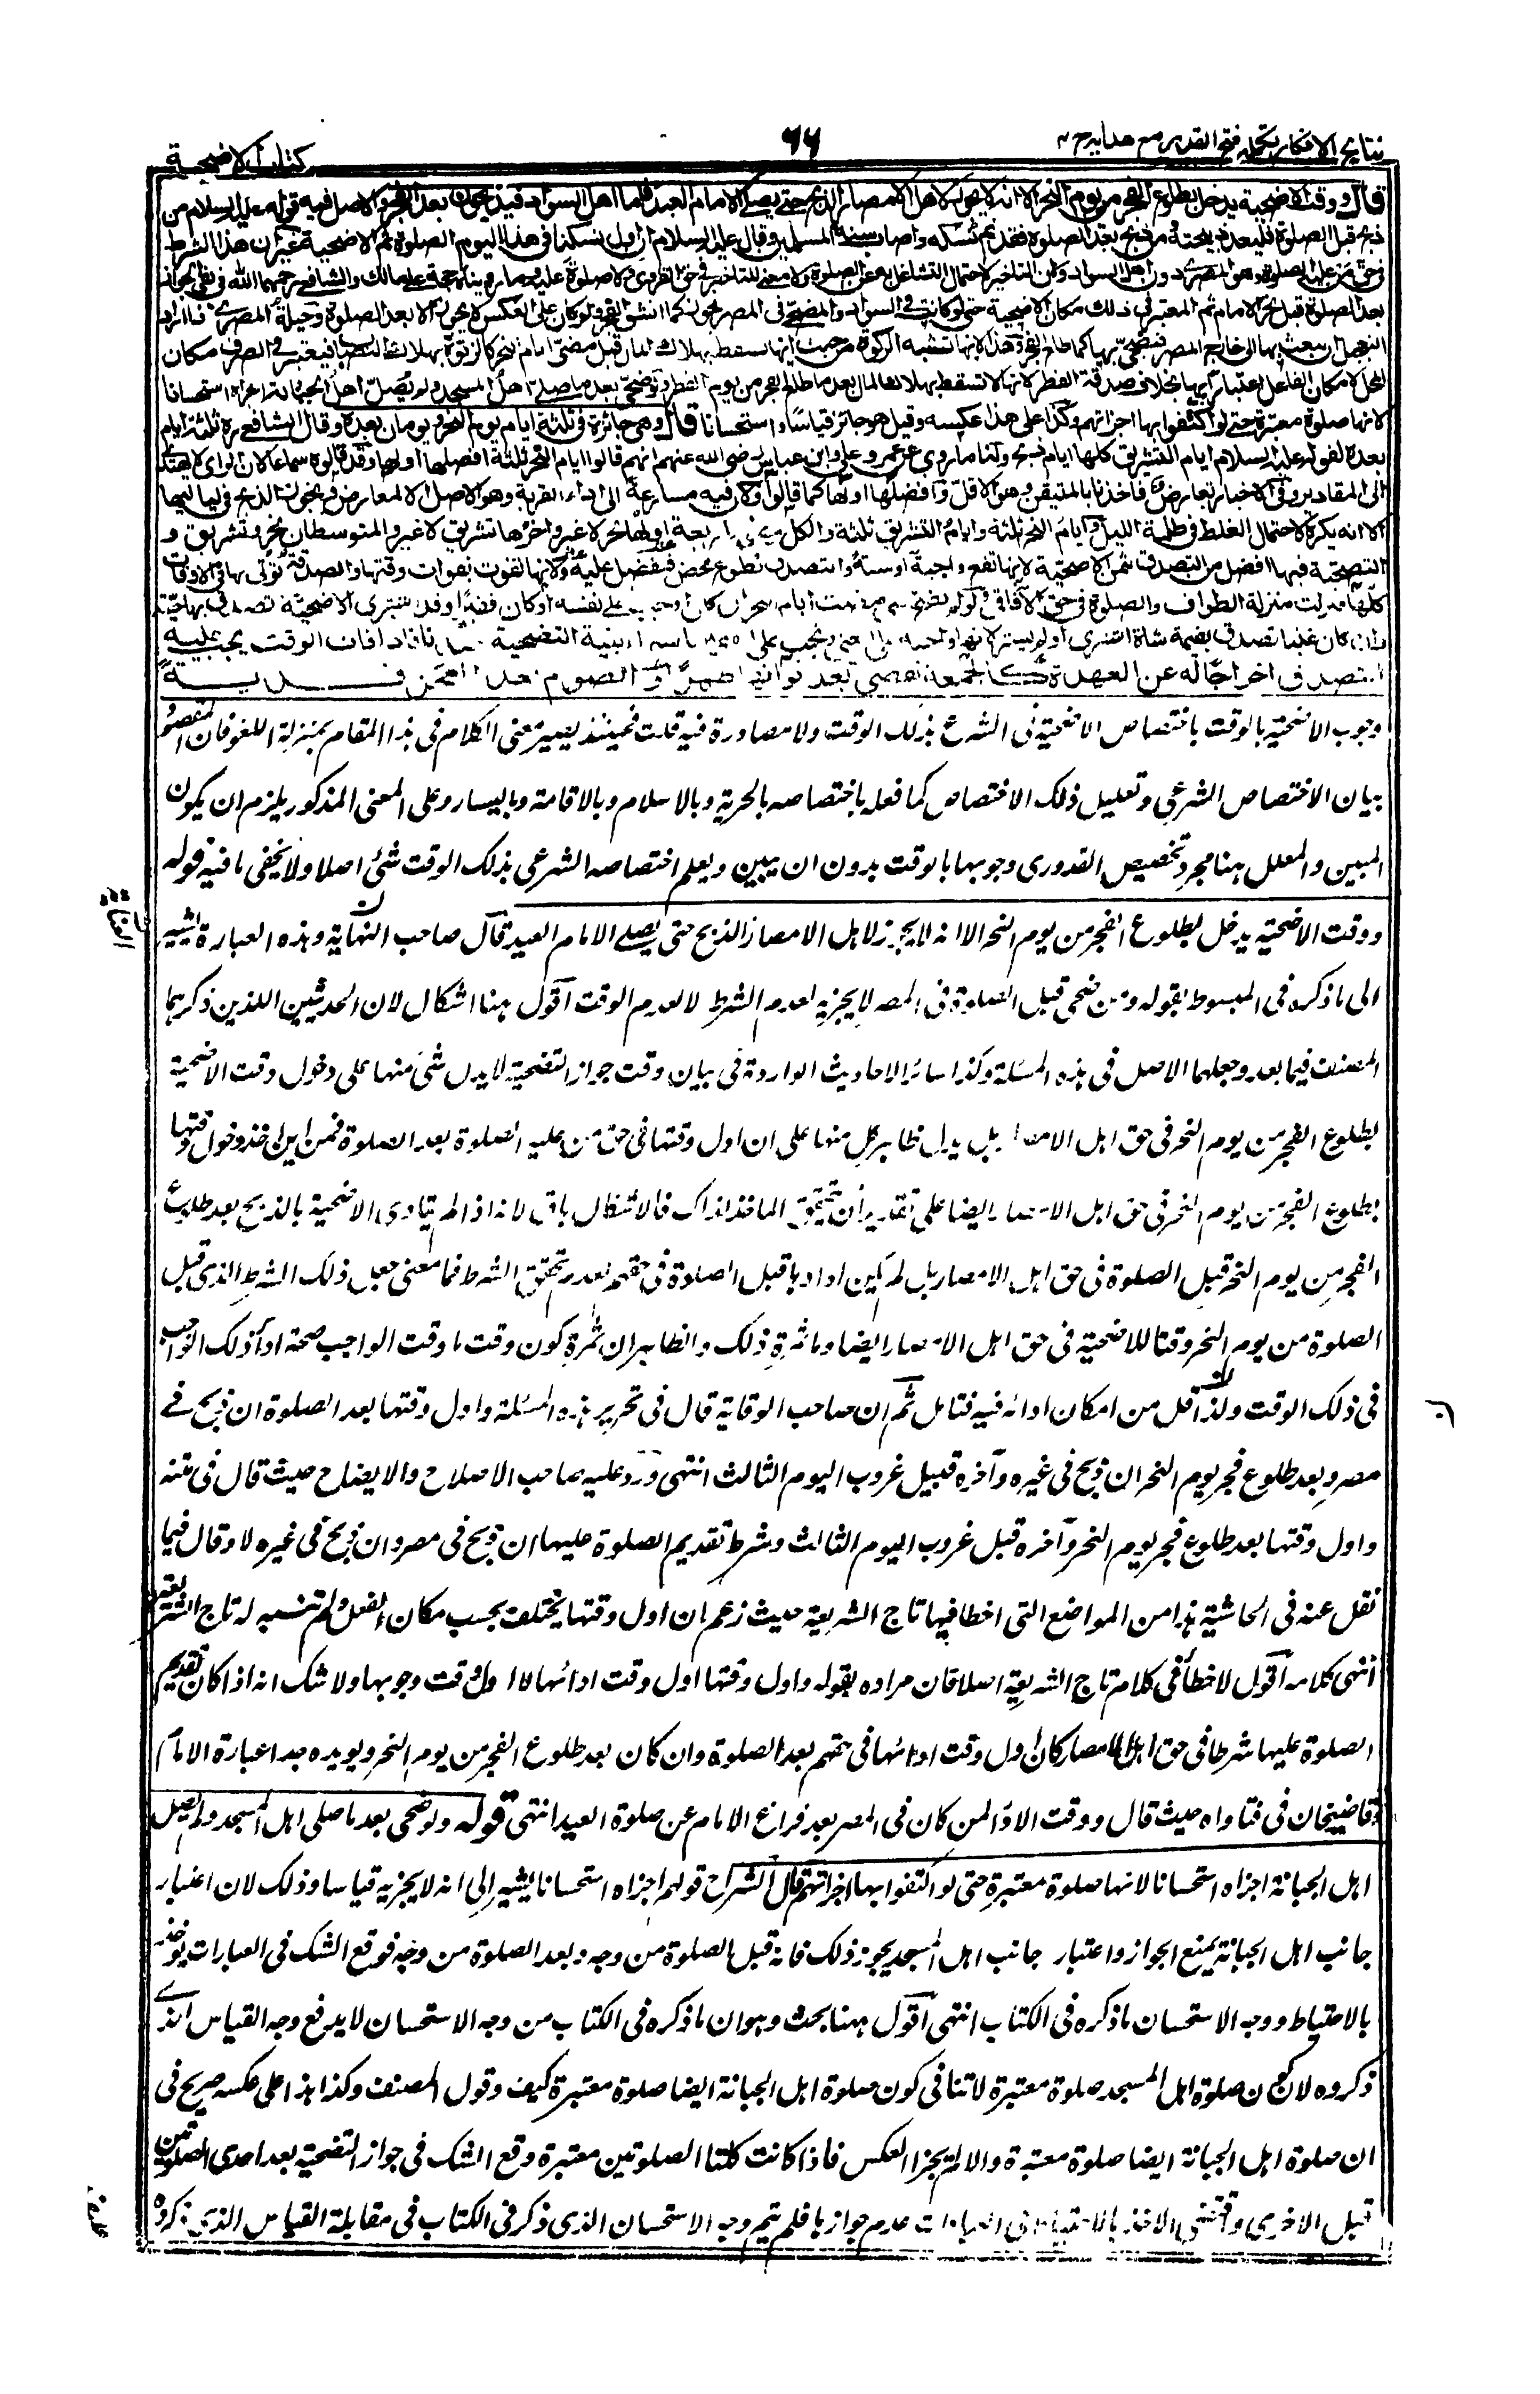 نتایج الافکار تکملہ فتح القدیر مع ھدایہ ج ۴
۶۶
کتاب الاضحیة
قال ووقت الاضحية يدخل بطلوع الفجر من يوم النحر الا انه لا يجوز لاهل الامصار الذبح حتى يصلى الامام العيد فاما اهل السواد فيذبحون بعد الفجر والاصل فيه قوله عليه السلام من
ذبح قبل الصلوة فليعد ذبيحته ومن ذبح بعد الصلوة فقد تم نسكه واصاب سنة المسلمين وقال عليه السلام ان اول نسكنا فى هذا اليوم الصلوة ثم الاضحية غير ان هذا الشرط
فى حق من عليه الصلوة وهو المصرى دون اهل السواد ولان التاخير لاحتمال التشاغل به عن الصلوة ولا معنى للتاخير فى حق القروى ولا صلوة عليه وما رويناه حجة على مالك والشافعى رحمهما الله فى نفى الجواز
بعد الصلوة قبل نحر الامام ثم المعتبر فى ذلك مكان الاضحية حتى لو كانت فى السواد والمضحى فى المصر يجوز كما انشق الفجر ولو كان على العكس لا يجوز الا بعد الصلوة وحيلة المصرى اذا اراد
التعجيل ان يبعث بها الى خارج المصر فيضحى بها كما طلع الفجر وهذا لانها تشبه الزكوة من حيث انها تسقط بهلاك المال قبل مضى ايام النحر كالزكوة بهلاك النصاب فيعتبر فى الصرف مكان
المحل لا مكان الفاعل اعتبارا بها بخلاف صدقة الفطر لانها لا تسقط بهلاك المال بعد ما طلع الفجر من يوم الفطر ولو ضحى بعد ما صلى اهل المسجد ولم يصل اهل الجبانة اجزاه استحسانا
لانها صلوة معتبرة حتى لو اكتفوا بها اجزاتهم وكذا على هذا عكسه وقيل هو جائز قياسا واستحسانا قال وهى جائزة فى ثلثة ايام يوم النحر ويومان بعده وقال الشافعى رح ثلثة ايام
بعده لقوله عليه السلام ايام التشريق كلها ايام ذبح ولنا ما روى عن عمر وعلى وابن عباس رضى الله عنهم انهم قالوا ايام النحر ثلثة افضلها اولها وقد قالوه سماعا لان الراى لا يهتدى
الى المقادير وفى الاخبار تعارض فاخذنا بالمتيقن وهو الاقل وافضلها اولها كما قالوا ولان فيه مسارعة الى اداء القربة وهو الاصل الا لمعارض ويجوز الذبح فى لياليها
الا انه يكره لاحتمال الغلط فى ظلمة الليل وايام النحر ثلثة وايام التشريق ثلثة والكل باربعة اولها نحر لا غير واخرها تشريق لا غير والمتوسطان نحر وتشريق و
التضحية فيها افضل من التصدق بثمن الاضحية لانها تقع واجبة او سنة والتصدق تطوع محض فتفضل عليه ولانها تفوت بفوات وقتها والصدقة تؤتى بها فى الاوقات
كلها فنزلت منزلة الطواف والصلوة فى حق الافاقى ولو لم يضح حتى مضت ايام النحر ان كان اوجب على نفسه او كان فقيرا وقد اشترى الاضحية تصدق بها حية
وان كان غنيا تصدق بقيمة شاة اشترى او لم يشتر لانها واجبة على الغنى وتجب على الفقير بالشراء بنية التضحية عندنا فاذا فات الوقت يجب عليه
التصدق اخراجا له عن العهدة كالجمعة تقضى بعد فواتها ظهرا والصوم بعد العجز فدية
وجوب الاضحية بالوقت باختصاص الاضحية فى الشرع بذلك الوقت ولا مصادرة فيه قلت فحينئذ يصير معنى الكلام فى هذا المقام بمنزلة اللغو فان المقصود
بيان الاختصاص الشرعى وتعليل ذلك الاختصاص كما فعله باختصاصه بالحرية وبالاسلام وبالاقامة وباليسار وعلى المعنى المذكور يلزم ان يكون
المبين والمعلل ههنا مجرد تخصيص القدورى وجوبها بالوقت بدون ان يبين ويعلم اختصاصه الشرعى بذلك الوقت شئ اصلا ولا يخفى ما فيه قوله
ووقت الاضحية يدخل بطلوع الفجر من يوم النحر الا انه لا يجوز لاهل الامصار الذبح حتى يصلى الامام العيد قال صاحب النهاية وهذه العبارة تشير
الى ما ذكره فى المبسوط بقوله ومن ضحى قبل الصلوة فى المصر لا يجزيه لعدم الشرط لا لعدم الوقت اقول ههنا اشكال لان الحديثين اللذين ذكرهما
المصنف فيما بعد وجعلهما الاصل فى هذه المسئلة وكذا سائر الاحاديث الواردة فى بيان وقت جواز التضحية لا يدل شئ منها على دخول وقت الاضحية
بطلوع الفجر من يوم النحر فى حق اهل الامصار بل يدل ظاهر كل منها على ان اول وقتها فى حق من عليه الصلوة بعد الصلوة فمن اين اخذ دخول وقتها
بطلوع الفجر من يوم النحر فى حق اهل الامصار ايضا على تقدير ان تحقق الماخذ لذاك فالاشكال باق لانه اذا لم يتادى الاضحية بالذبح بعد طلوع
الفجر من يوم النحر قبل الصلوة فى حق اهل الامصار بل لم يكن اداؤها قبل الصلوة فى حقهم لعدم تحقق الشرط فما معنى جعل ذلك الشرط الذى قبل
الصلوة من يوم النحر وقتا للاضحية فى حق اهل الامصار ايضا وما ثمرة ذلك والظاهر ان ثمرة كون وقت ما وقت الواجب صحة اداء ذلك الواجب
فى ذلك الوقت ولا اقل من امكان ادائه فيه فتامل ثم ان صاحب الوقاية قال فى تحرير هذه المسئلة واول وقتها بعد الصلوة ان ذبح فى
مصر وبعد طلوع فجر يوم النحر ان ذبح فى غيره وآخره قبيل غروب اليوم الثالث انتهى ورد عليه صاحب الاصلاح والايضاح حيث قال فى متنه
واول وقتها بعد طلوع فجر يوم النحر وآخره قبل غروب اليوم الثالث وشرط تقديم الصلوة عليها ان ذبح فى مصر وان ذبح فى غيره لا وقال فيما
نقل عنه فى الحاشية هذا من المواضع التى اخطا فيها تاج الشريعة حيث زعم ان اول وقتها يختلف بحسب مكان الفعل ولم تنسبه له تاج الشريعة
انتهى كلامه اقول لا خطأ فى كلام تاج الشريعة اصلا فان مراده بقوله واول وقتها اول وقت ادائها لا اول وقت وجوبها ولا شك انه اذا كان تقديم
الصلوة عليها شرطا فى حق اهل الامصار كان اول وقت ادائها فى حقهم بعد الصلوة وان كان بعد طلوع الفجر من يوم النحر ويويده جدا عبارة الامام
قاضيخان فى فتاواه حيث قال ووقت الاداء لمن كان فى المصر بعد فراغ الامام عن صلوة العيد انتهى قوله ولو ضحى بعد ما صلى اهل المسجد ولم يصل
اهل الجبانة اجزاه استحسانا لانها صلوة معتبرة حتى لو اكتفوا بها اجزاتهم قال الشراح قولهم اجزاه استحسانا يشير الى انه لا يجزيه قياسا وذلك لان اعتبار
جانب اهل الجبانة يمنع الجواز واعتبار جانب اهل المسجد يجوز ذلك فانه قبل الصلوة من وجه وبعد الصلوة من وجه فوقع الشك فى العبارات يوخذ
بالاحتياط ووجه الاستحسان ما ذكره فى الكتاب انتهى اقول ههنا بحث وهو ان ما ذكره فى الكتاب من وجه الاستحسان لا يدفع وجه القياس الذى
ذكروه لان كون صلوة اهل المسجد صلوة معتبرة لا تنافى كون صلوة اهل الجبانة ايضا صلوة معتبرة كيف وقول المصنف وكذا هذا على عكسه صريح فى
ان صلوة اهل الجبانة ايضا صلوة معتبرة والا لم يجز العكس فاذا كانت كلتا الصلوتين معتبرة وقع الشك فى جواز التضحية بعد احدى الصلوتين
قبل الاخرى وتقتضى الاخذ بالاحتياط فى العبادات عدم جوازها فلم يتم وجه الاستحسان الذى ذكر فى الكتاب فى مقابلة القياس الذى ذكروه